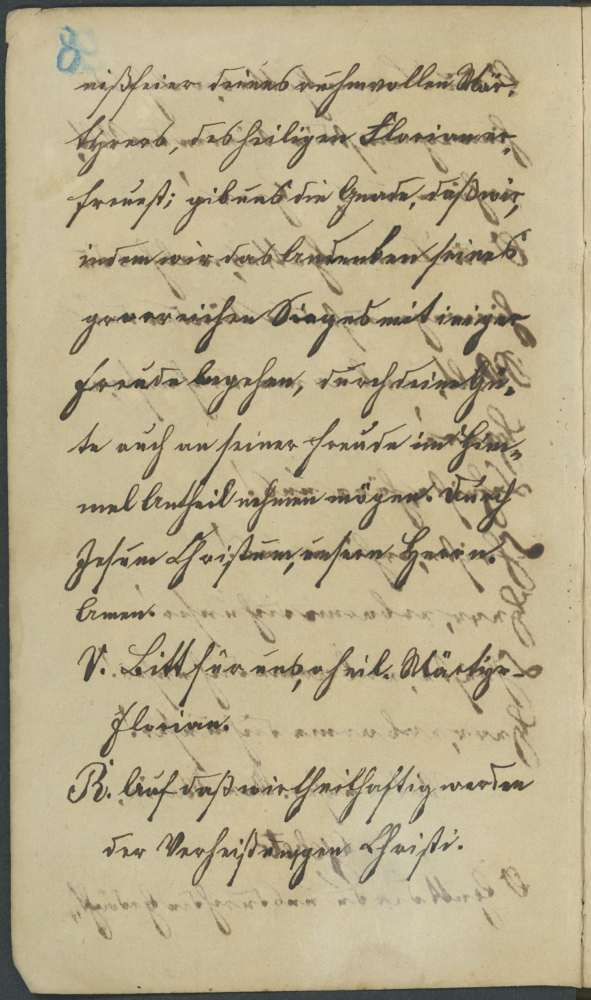 8
nißfeier deines ruhmvollen Mär-
tyrers, des heiligen Florian er-
freuest; gib uns die Gnade, daß wir,
indem wir das Andenken seines
Sieges mit inniger
Freude begehen, durch deine Gü-
te auch an seiner Freude im Him-
mel Antheil nehmen mögen. Durch
Jesum Christum, unsern Herrn.
Amen.
V. Bitt für uns, o heil. Märtyr
Florian.
R. Auf daß wir theilhaftig werden
der Verheißungen Christi.